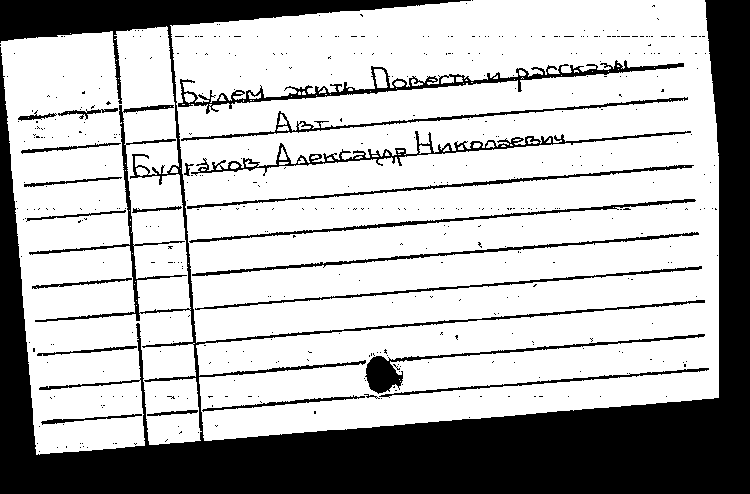 Будем жить Повесть и рассказы
Авт.:
Булгаков, Александр Николаевич